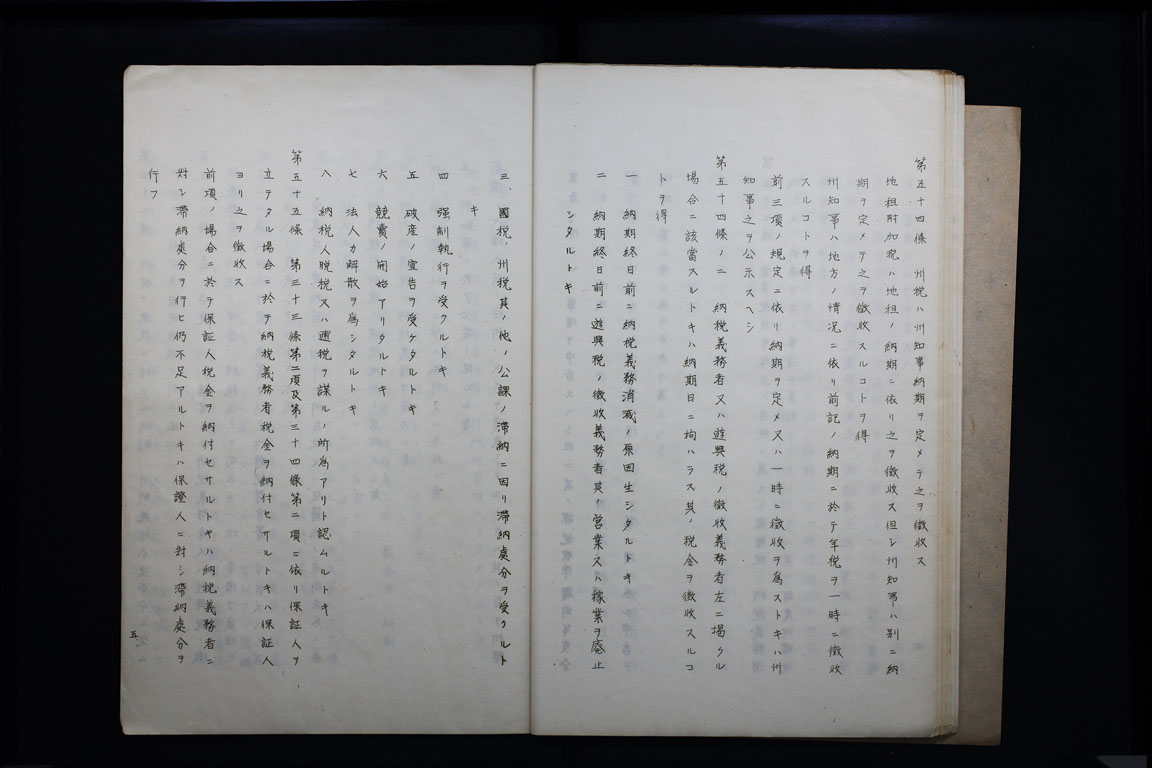 第五十四條　州税ハ州知事納期ヲ定メテ之ヲ徴收ス
地租附加税ハ地租ノ納期ニ依リ之ヲ徴收ス但シ州知事ハ別ニ納
期ヲ定メテ之ヲ徴收スルコトヲ得
州知事ハ地方ノ情况ニ依リ前記ノ納期ニ於テ年税ヲ一時ニ徴收
スルコトヲ得
前三項ノ規定ニ依リ納期ヲ定メ又ハ一時ニ徴收ヲ爲ストキハ州
知事之ヲ公示スヘシ
第五十四條ノ二　納税義務者又ハ遊興税ノ徴收義務者左ニ揭クル
場合ニ該當スルトキハ納期日ニ拘ハラス其ノ税金ヲ徴收スルコ
トヲ得
一　納期終日前ニ納税義務消滅ノ原因生シタルトキ
二　納期終日前ニ遊興税ノ徴收義務者其ノ營業又ハ稼業ヲ廢止
シタルトキ
三、國税、州税其ノ他ノ公課ノ滞納ニ因リ滞納處分ヲ受クルト
キ
四　强制執行ヲ受クルトキ
五　破産ノ宣告ヲ受ケタルトキ
六　競賣ノ開始アリタルトキ
七　法人カ解散ヲ爲シタルトキ
八　納税人脱税又ハ逋税ヲ謀ルノ所為アリト認ムルトキ
第五十五條　第三十三條第二項及第三十四條第二項ニ依リ保証人ヲ
立テタル場合ニ於テ納税義務者税金ヲ納付セサルトキハ保証人
ヨリ之ヲ徴收ス
前項ノ場合ニ於テ保証人税金ヲ納付セサルトキハ納税義務者ニ
對シ滞納處分ヲ行ヒ仍不足アルトキハ保證人ニ對シ滞納處分ヲ
行フ
五